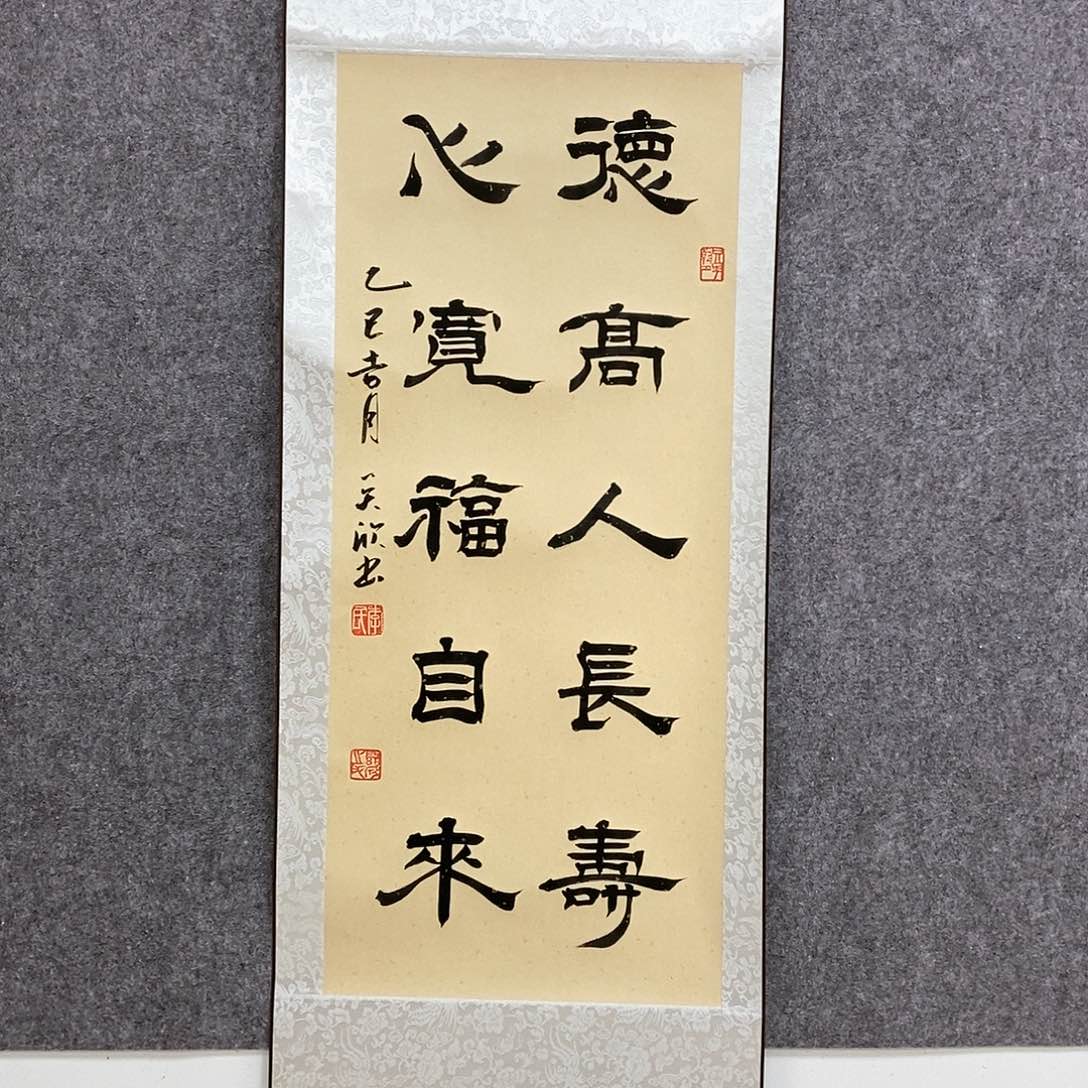 德高人長壽
心寬福自來
乙巳吉月 吴欣书